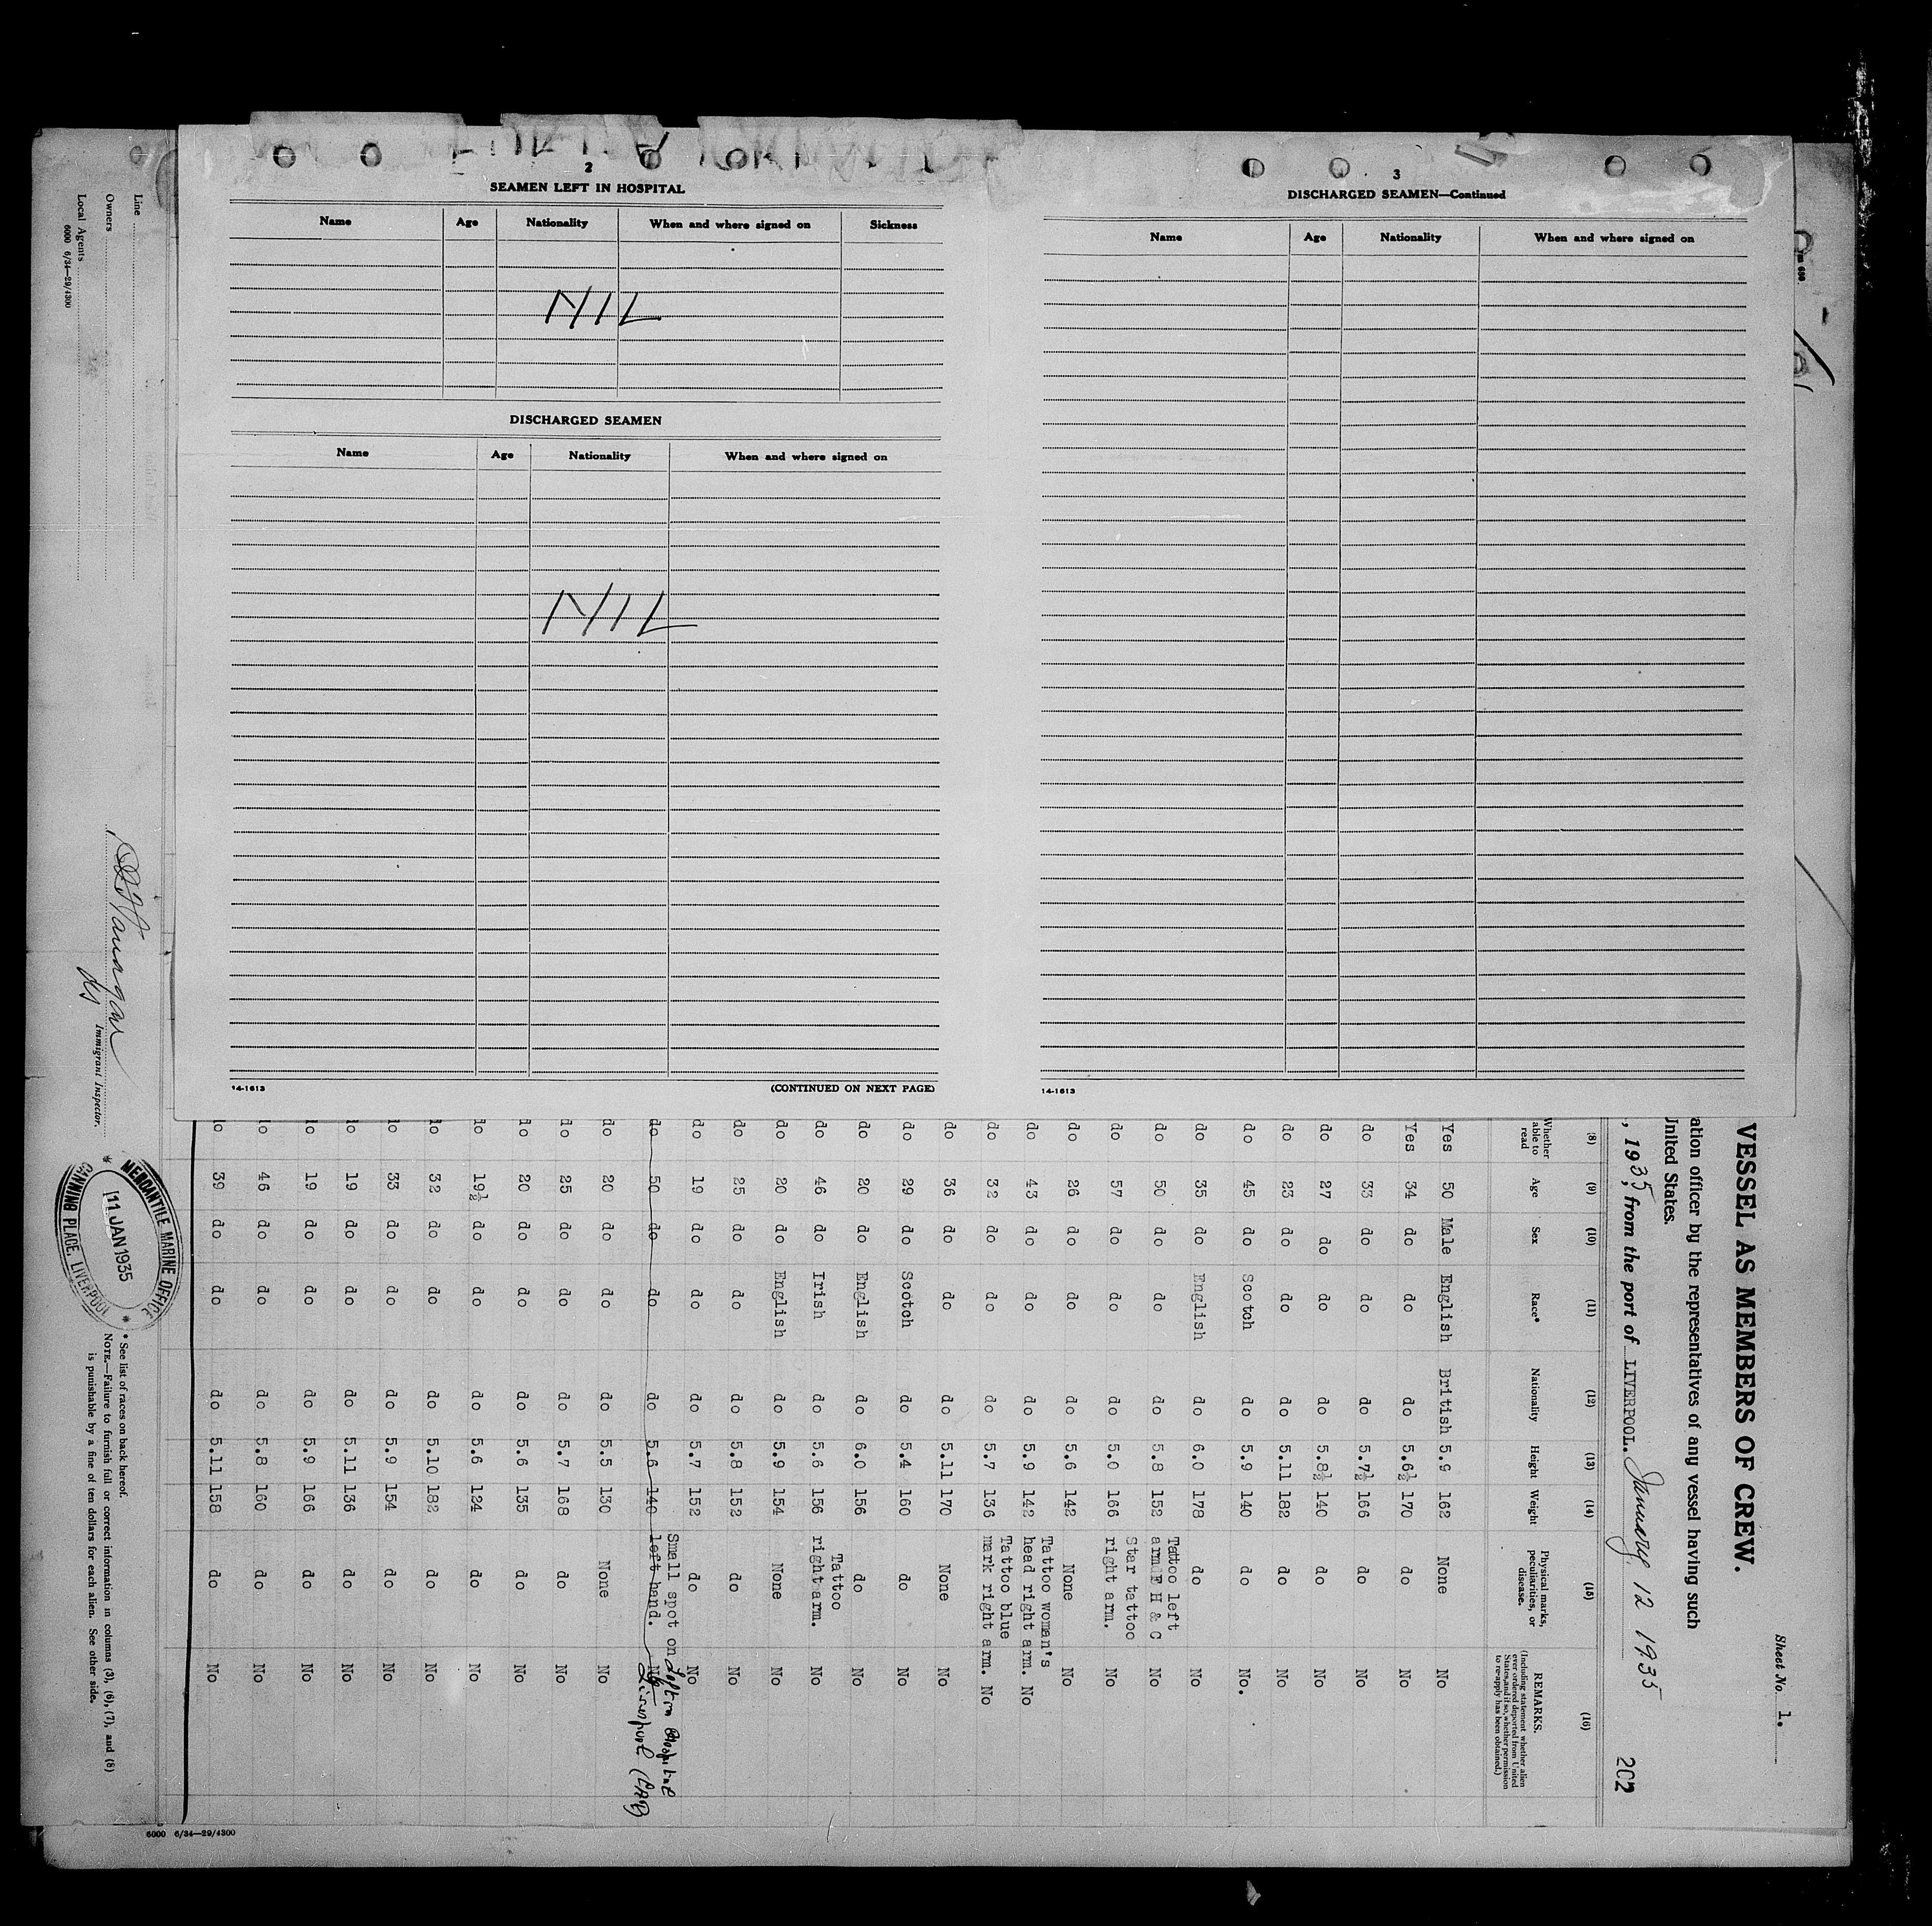 2
SEAMEN LEFT IN HOSPITAL
Name Age Nationality When and where signed on Sickness
NIL
DISCHARGED SEAMEN
Name Age Nationality When and where signed on
NIL
14-1613 (CONTINUED ON NEXT PAGE)
3
DISCHARGED SEAMEN—Continued
Name Age Nationality When and where signed on
14-1613
Sheet No. 1.
VESSEL AS MEMBERS OF CREW.
ation officer by the representatives of any vessel having such
United States.
, 1935, from the port of LIVERPOOL. January 12 1935
202
(8) (9) (10) (11) (12) (13) (14) (15) (16)
Whether able to read Age Sex Race* Nationality Height Weight Physical marks, peculiarities, or disease. REMARKS. (Including statement whether alien ever ordered deported from United States, and if so, whether permission to re-apply has been obtained.)
Yes 50 Male English British 5.9 162 None No
Yes 34 do do do 5.6½ 170 do No
do 33 do do do 5.7½ 166 do No
do 27 do do do 5.8½ 140 do No
do 23 do do do 5.11 182 do No
do 45 do Scotch do 5.9 140 do No.
do 35 do English do 6.0 178 do No
do 50 do do do 5.8 152 Tattoo left arm F H & C No
do 57 do do do 5.0 166 Star tattoo right arm. No
do 26 do do do 5.6 142 None No
do 43 do do do 5.9 142 Tattoo woman's head right arm. No
do 32 do do do 5.7 136 Tattoo blue mark right arm. No
do 36 do do do 5.11 170 None No
do 29 do Scotch do 5.4 160 do No
do 20 do English do 6.0 156 do No
do 46 do Irish do 5.6 156 Tattoo right arm. No
do 20 do English do 5.9 154 None No
do 25 do do do 5.8 152 do No
do 19 do do do 5.7 152 do No
do 50 do do do 5.6 140 Small spot on left hand. No Left in Hospital Liverpool
do 20 do do do 5.5 130 None No
do 25 do do do 5.7 168 do No
do 20 do do do 5.6 135 do No
do 19½ do do do 5.6 124 do No
do 32 do do do 5.10 182 do No
do 33 do do do 5.9 154 do No
do 19 do do do 5.11 136 do No
do 19 do do do 5.9 166 do No
do 46 do do do 5.8 160 do No
do 39 do do do 5.11 158 do No
Line
Owners
Local Agents
6000 6/34—29/4300
Immigrant Inspector.
MERCANTILE MARINE OFFICE
11 JAN 1935
CANNING PLACE, LIVERPOOL
* See list of races on back hereof.
NOTE.—Failure to furnish full or correct information in columns (3), (6), (7), and (8)
is punishable by a fine of ten dollars for each alien. See other side.
6000 6/34—29/4300